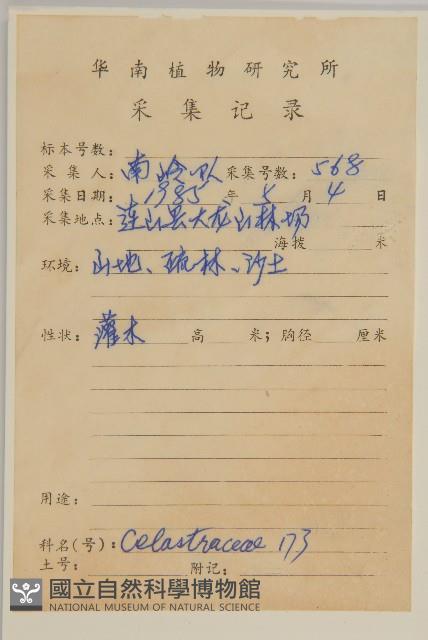 华南植物研究所
采集记录
标本号数：
采集人：南岭队 采集号数：568
采集日期：1985年5月4日
采集地点：连山县大龙山林场
海拨 米
环境：山地、疏林、沙土
性状：灌木 高 米；胸径 厘米
用途：
科名(号)：Celastraceae 173
土号： 附记：
國立自然科學博物館
NATIONAL MUSEUM OF NATURAL SCIENCE